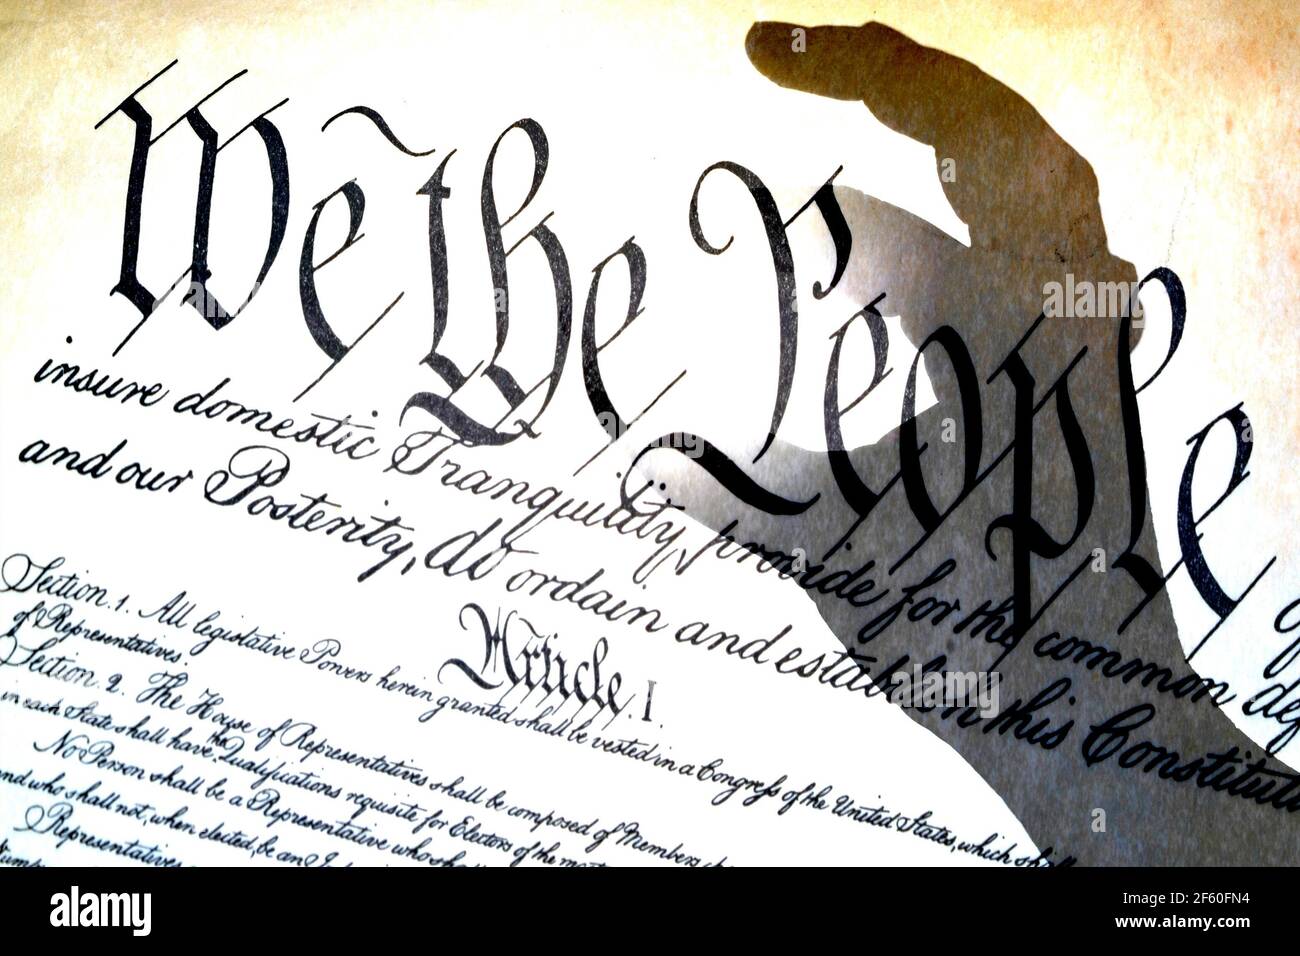 We the People
insure domestic Tranquility, provide for the common
and our Posterity, do ordain and establish this
Article. I.
Section. 1. All legislative Powers herein granted shall be vested in a Congress of the United States, which
of Representatives.
Section. 2. The House of Representatives shall be composed of Members
in each State shall have the Qualifications requisite for Electors of the
No Person shall be a Representative who
and who shall not, when elected, be an
Representatives
alamy
Image ID: 2F60FN4
www.alamy.com